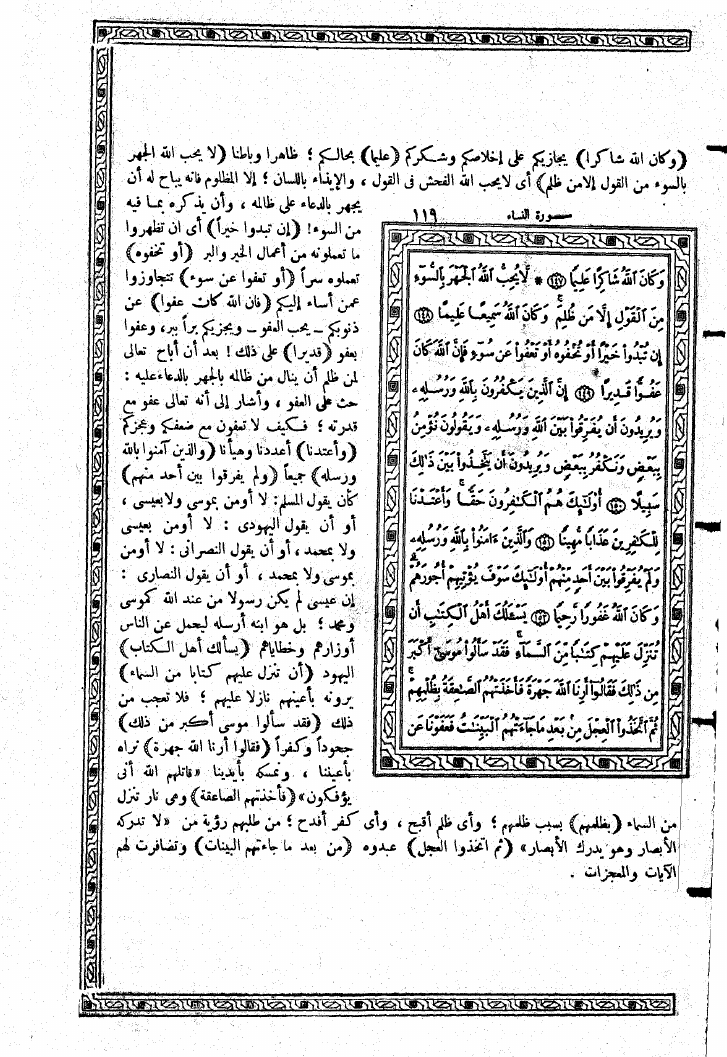 (وكان الله شاكرا) يجازيكم على إخلاصكم وشكركم (عليما) بحالكم ؛ ظاهرا وباطنا (لا يحب الله الجهر
بالسوء من القول إلا من ظلم) أى لايحب الله الفحش فى القول ، والإيذاء باللسان ؛ إلا المظلوم فانه يباح له أن
يجهر بالدعاء على ظالمه ، وأن يذكره بما فيه
من السوء! (إن تبدوا خيراً) أى ان تظهروا
ما تعملونه من أعمال الخير والبر (أو تخفوه)
تعملوه سراً (أو تعفوا عن سوء) تتجاوزوا
عمن أساء إليكم (فان الله كان عفوا) عن
ذنوبكم ــ يحب العفو ــ ويجزيكم براً ببر، وعفوا
بعفو (قديرا) على ذلك ! بعد أن أباح تعالى
لمن ظلم أن ينال من ظالمه بالجهر بالدعاء عليه :
حث على العفو ، وأشار إلى أنه تعالى عفو مع
قدرته ؛ فكيف لا تعفون مع ضعفكم وعجزكم
(وأعتدنا) أعددنا وهيأنا (والذين آمنوا بالله
ورسله) جميعاً (ولم يفرقوا بين أحد منهم)
كأن يقول المسلم: لا أومن بموسى ولا بعيسى ،
أو أن يقول اليهودى : لا أومن بعيسى
ولا بمحمد ، أو أن يقول النصرانى : لا أومن
بموسى ولا بمحمد ، أو أن يقول النصارى :
إن عيسى لم يكن رسولا من عند الله كموسى
ومحمد ؛ بل هو ابنه أرسله ليحمل عن الناس
أوزارهم وخطاياهم (يسألك أهل الكتاب)
اليهود (أن تنزل عليهم كتابا من السماء)
يرونه بأعينهم نازلا عليهم ؛ فلا تعجب من
ذلك (فقد سألوا موسى أكبر من ذلك)
جحوداً وكفراً (فقالوا أرنا الله جهرة) نراه
بأعيننا ، ونمسكه بأيدينا «قاتلهم الله أنى
يؤفكون» (فأخذتهم الصاعقة) وهى نار تنزل
سورة النساء ١١٩
وَكَانَ ٱللَّهُ شَاكِرًا عَلِيمًا ﴿١٤٧﴾ * لَّا يُحِبُّ ٱللَّهُ ٱلْجَهْرَ بِٱلسُّوٓءِ
مِنَ ٱلْقَوْلِ إِلَّا مَن ظُلِمَ ۚ وَكَانَ ٱللَّهُ سَمِيعًا عَلِيمًا ﴿١٤٨﴾
إِن تُبْدُوا۟ خَيْرًا أَوْ تُخْفُوهُ أَوْ تَعْفُوا۟ عَن سُوٓءٍ فَإِنَّ ٱللَّهَ كَانَ
عَفُوًّا قَدِيرًا ﴿١٤٩﴾ إِنَّ ٱلَّذِينَ يَكْفُرُونَ بِٱللَّهِ وَرُسُلِهِۦ
وَيُرِيدُونَ أَن يُفَرِّقُوا۟ بَيْنَ ٱللَّهِ وَرُسُلِهِۦ وَيَقُولُونَ نُؤْمِنُ
بِبَعْضٍ وَنَكْفُرُ بِبَعْضٍ وَيُرِيدُونَ أَن يَتَّخِذُوا۟ بَيْنَ ذَٰلِكَ
سَبِيلًا ﴿١٥٠﴾ أُو۟لَـٰٓئِكَ هُمُ ٱلْكَـٰفِرُونَ حَقًّا ۚ وَأَعْتَدْنَا
لِلْكَـٰفِرِينَ عَذَابًا مُّهِينًا ﴿١٥١﴾ وَٱلَّذِينَ ءَامَنُوا۟ بِٱللَّهِ وَرُسُلِهِۦ
وَلَمْ يُفَرِّقُوا۟ بَيْنَ أَحَدٍ مِّنْهُمْ أُو۟لَـٰٓئِكَ سَوْفَ يُؤْتِيهِمْ أُجُورَهُمْ ۗ
وَكَانَ ٱللَّهُ غَفُورًا رَّحِيمًا ﴿١٥٢﴾ يَسْـَٔلُكَ أَهْلُ ٱلْكِتَـٰبِ أَن
تُنَزِّلَ عَلَيْهِمْ كِتَـٰبًا مِّنَ ٱلسَّمَآءِ ۚ فَقَدْ سَأَلُوا۟ مُوسَىٰٓ أَكْبَرَ
مِن ذَٰلِكَ فَقَالُوٓا۟ أَرِنَا ٱللَّهَ جَهْرَةً فَأَخَذَتْهُمُ ٱلصَّـٰعِقَةُ بِظُلْمِهِمْ ۚ
ثُمَّ ٱتَّخَذُوا۟ ٱلْعِجْلَ مِنۢ بَعْدِ مَا جَآءَتْهُمُ ٱلْبَيِّنَـٰتُ فَعَفَوْنَا عَن
من السماء (بظلمهم) بسبب ظلمهم ؛ وأى ظلم أقبح ، وأى كفر أفدح ؛ من طلبهم رؤية من «لا تدركه
الأبصار وهو يدرك الأبصار» (ثم اتخذوا العجل) عبدوه (من بعد ما جاءتهم البينات) وتضافرت لهم
الآيات والمعجزات .